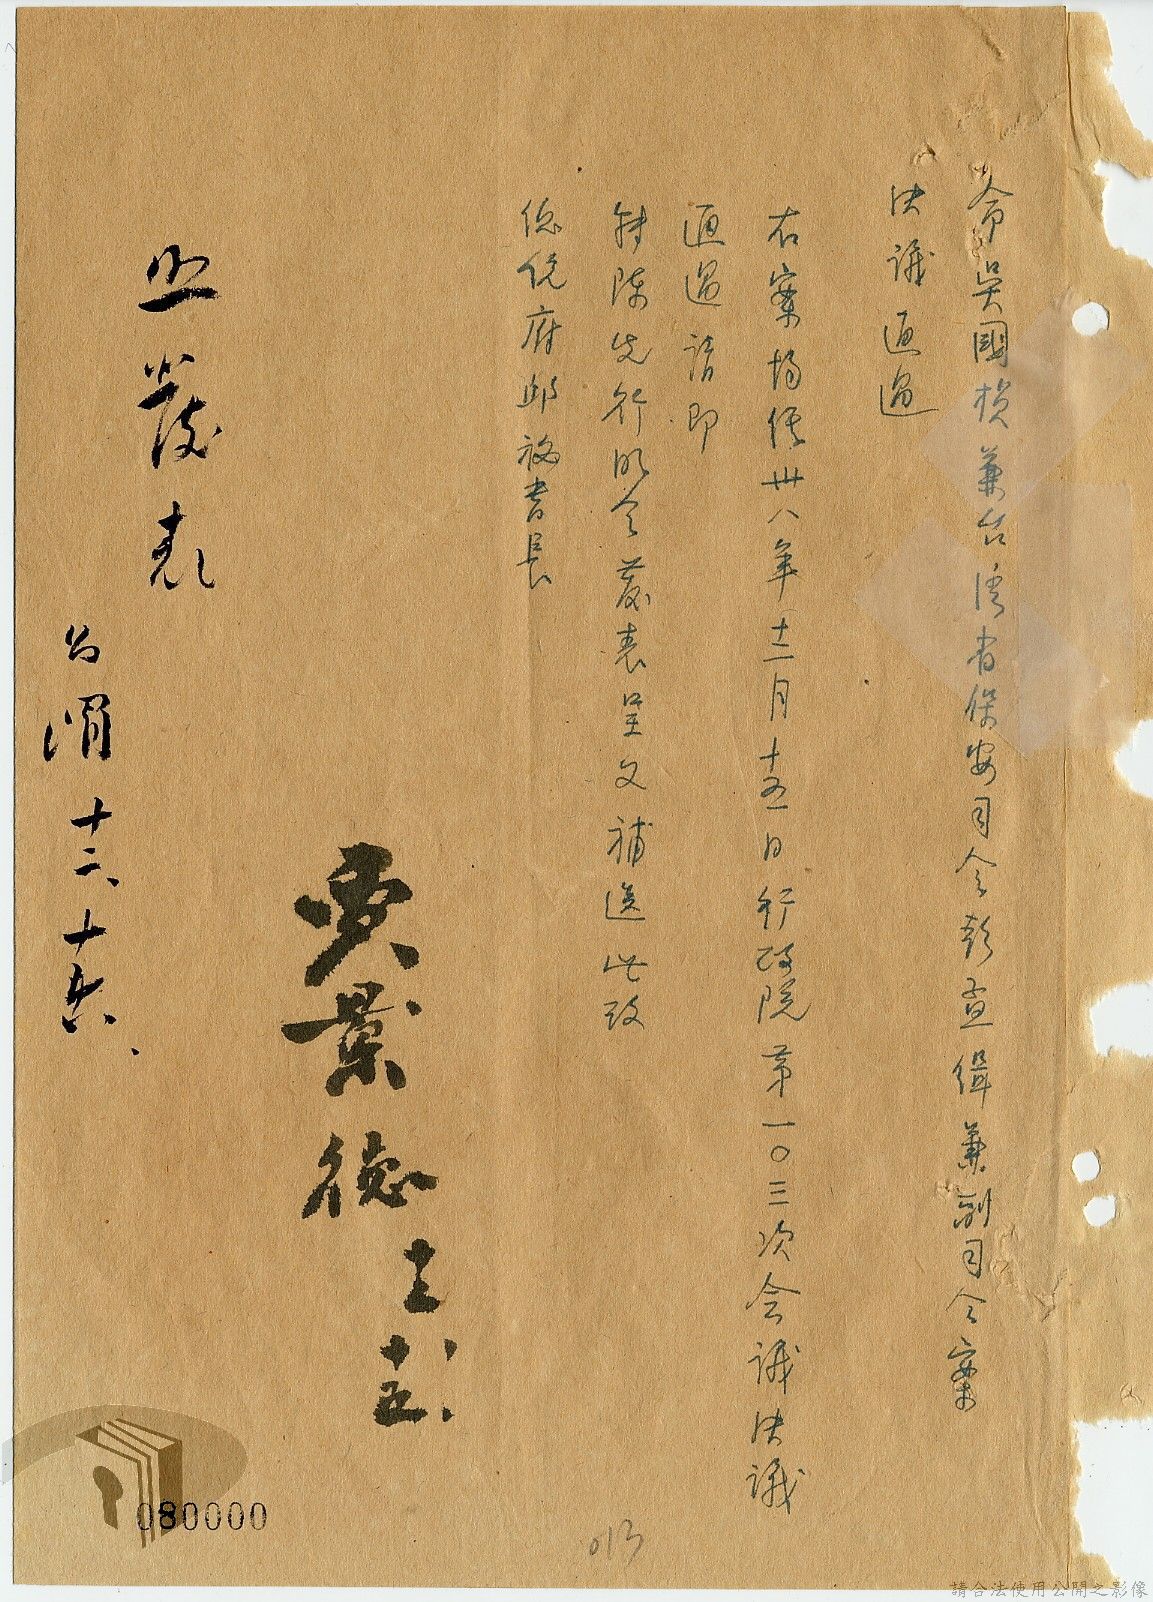 命吳國楨兼台湾省保安司令彭孟緝兼副司令案
決議通過
右案揭經卅八年十二月十五日行政院第一〇三次会議決議
通過請即
轉陳先行明令發表呈文補送此致
总统府邱祕書長
賈景德
十二、十五、
照發表
昌渭
十二、十五、
080000
013
請合法使用公開之影像